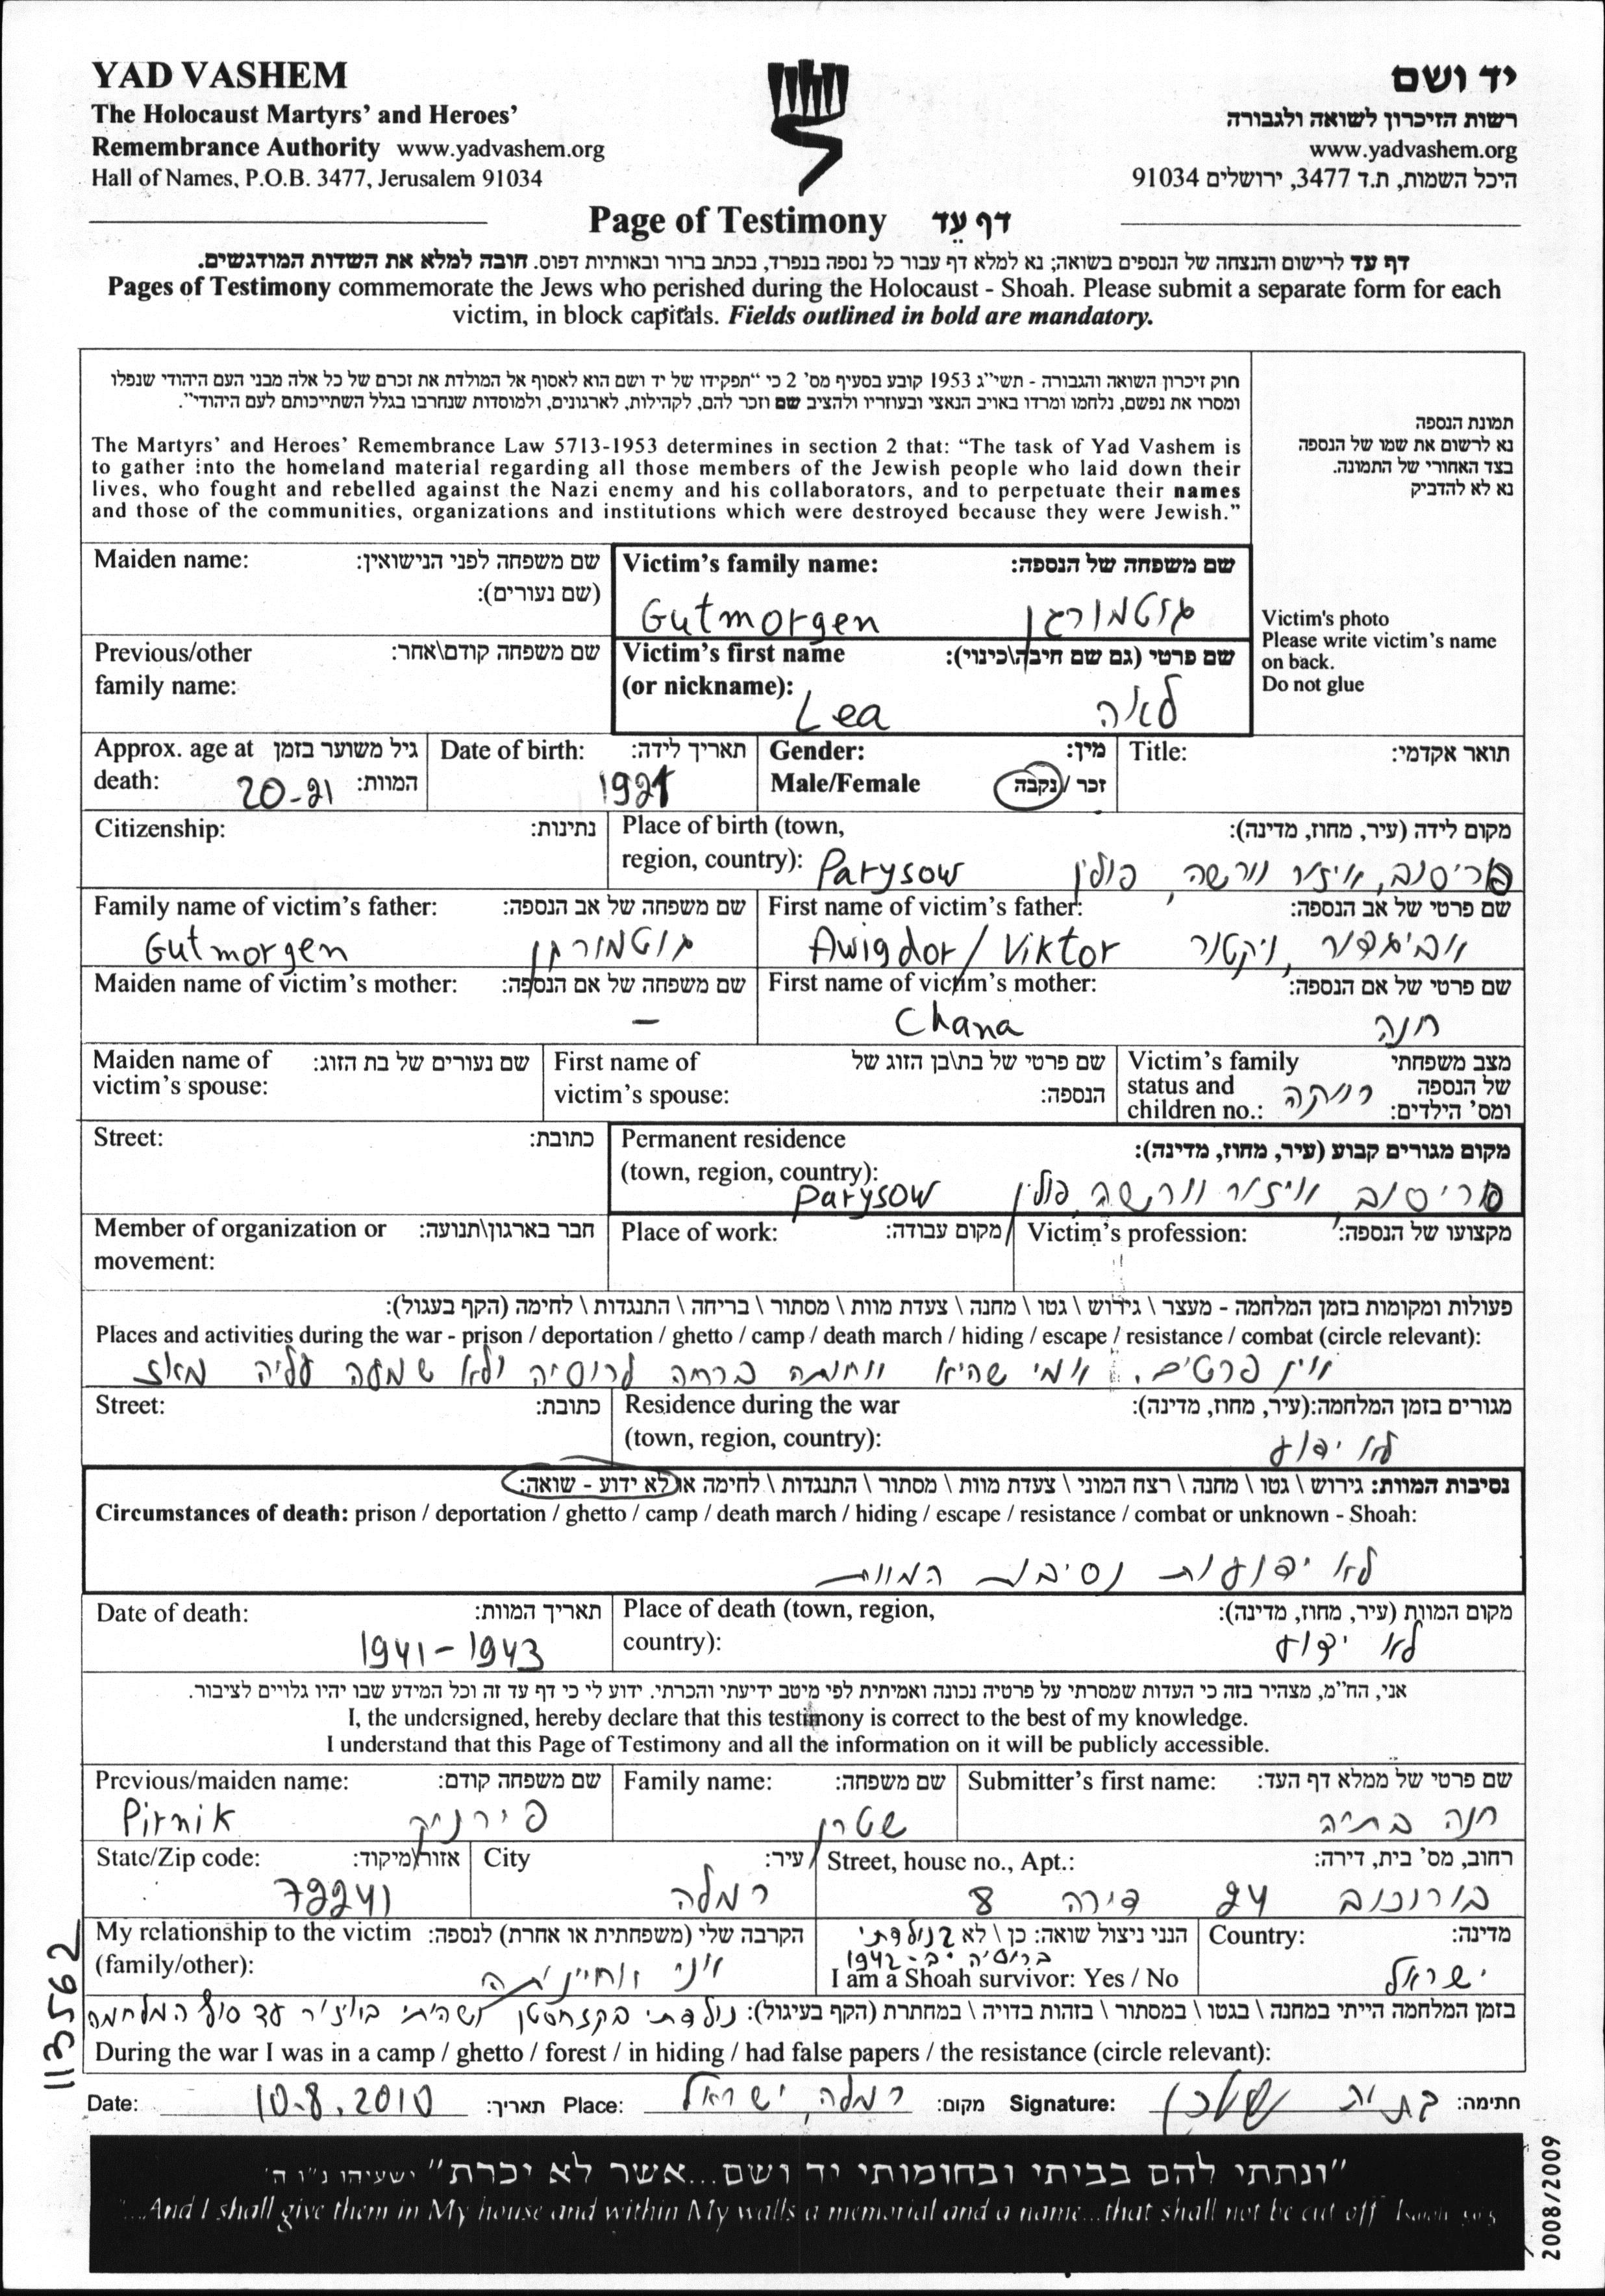 YAD VASHEM
The Holocaust Martyrs' and Heroes'
Remembrance Authority www.yadvashem.org
Hall of Names, P.O.B. 3477, Jerusalem 91034
יד ושם
רשות הזיכרון לשואה ולגבורה
www.yadvashem.org
היכל השמות, ת.ד 3477, ירושלים 91034
Page of Testimony דף עֵד
דף עד לרישום והנצחה של הנספים בשואה; נא למלא דף עבור כל נספה בנפרד, בכתב ברור ובאותיות דפוס. חובה למלא את השדות המודגשים.
Pages of Testimony commemorate the Jews who perished during the Holocaust - Shoah. Please submit a separate form for each
victim, in block capitals. Fields outlined in bold are mandatory.
חוק זיכרון השואה והגבורה - תשי"ג 1953 קובע בסעיף מס' 2 כי "תפקידו של יד ושם הוא לאסוף אל המולדת את זכרם של כל אלה מבני העם היהודי שנפלו
ומסרו את נפשם, נלחמו ומרדו באויב הנאצי ובעוזריו ולהציב שם וזכר להם, לקהילות, לארגונים, ולמוסדות שנחרבו בגלל השתייכותם לעם היהודי".
The Martyrs' and Heroes' Remembrance Law 5713-1953 determines in section 2 that: "The task of Yad Vashem is
to gather into the homeland material regarding all those members of the Jewish people who laid down their
lives, who fought and rebelled against the Nazi enemy and his collaborators, and to perpetuate their names
and those of the communities, organizations and institutions which were destroyed because they were Jewish."
תמונת הנספה
נא לרשום את שמו של הנספה
בצד האחורי של התמונה.
נא לא להדביק
Victim's photo
Please write victim's name
on back.
Do not glue
Maiden name: שם משפחה לפני הנישואין:
(שם נעורים):
Victim's family name: שם משפחה של הנספה:
Gutmorgen גוטמורגן
Previous/other שם משפחה קודם\אחר:
family name:
Victim's first name שם פרטי (גם שם חיבה\כינוי):
(or nickname):
Lea לאה
Approx. age at גיל משוער בזמן
death: 20-21 המוות:
Date of birth: תאריך לידה:
1921
Gender: מין:
Male/Female זכר / נקבה
Title: תואר אקדמי:
Citizenship: נתינות:
Place of birth (town, מקום לידה (עיר, מחוז, מדינה):
region, country): Parysow פריסוב, איזור וורשה, פולין
Family name of victim's father: שם משפחה של אב הנספה:
Gutmorgen גוטמורגן
First name of victim's father: שם פרטי של אב הנספה:
Awigdor/Viktor אביגדור, ויקטור
Maiden name of victim's mother: שם משפחה של אם הנספה:
–
First name of victim's mother: שם פרטי של אם הנספה:
Chana חנה
Maiden name of שם נעורים של בת הזוג:
victim's spouse:
First name of שם פרטי של בת\בן הזוג של
victim's spouse: הנספה:
Victim's family מצב משפחתי
status and של הנספה
children no.: ומס' הילדים: רווקה
Street: כתובת:
Permanent residence מקום מגורים קבוע (עיר, מחוז, מדינה):
(town, region, country):
Parysow פריסוב, איזור וורשה, פולין
Member of organization or חבר בארגון\תנועה:
movement:
Place of work: מקום עבודה:
Victim's profession: מקצועו של הנספה:
פעולות ומקומות בזמן המלחמה - מעצר \ גירוש \ גטו \ מחנה \ צעדת מוות \ מסתור \ בריחה \ התנגדות \ לחימה (הקף בעגול):
Places and activities during the war - prison / deportation / ghetto / camp / death march / hiding / escape / resistance / combat (circle relevant):
אין פרטים. אמי שהיא אחותה ברחה לרוסיה ולא שמעה עליה מאז
Street: כתובת:
Residence during the war מגורים בזמן המלחמה:(עיר, מחוז, מדינה):
(town, region, country): לא ידוע
נסיבות המוות: גירוש \ גטו \ מחנה \ רצח המוני \ צעדת מוות \ מסתור \ התנגדות \ לחימה או לא ידוע - שואה:
Circumstances of death: prison / deportation / ghetto / camp / death march / hiding / escape / resistance / combat or unknown - Shoah:
לא ידועות נסיבות המוות
Date of death: תאריך המוות:
1941-1943
Place of death (town, region, מקום המוות (עיר, מחוז, מדינה):
country): לא ידוע
אני, הח"מ, מצהיר בזה כי העדות שמסרתי על פרטיה נכונה ואמיתית לפי מיטב ידיעתי והכרתי. ידוע לי כי דף עד זה וכל המידע שבו יהיו גלויים לציבור.
I, the undersigned, hereby declare that this testimony is correct to the best of my knowledge.
I understand that this Page of Testimony and all the information on it will be publicly accessible.
Previous/maiden name: שם משפחה קודם:
Pirnik פירניק
Family name: שם משפחה:
שטרן
Submitter's first name: שם פרטי של ממלא דף העד:
חנה בתיה
State/Zip code: אזור\מיקוד:
72241
City עיר:
רמלה
Street, house no., Apt.: רחוב, מס' בית, דירה:
בורוכוב 24 דירה 8
My relationship to the victim הקרבה שלי (משפחתית או אחרת) לנספה:
(family/other): אני אחייניתה
הנני ניצול שואה: כן \ לא נולדתי
ברוסיה ב-1942
I am a Shoah survivor: Yes / No
Country: מדינה:
ישראל
בזמן המלחמה הייתי במחנה \ בגטו \ במסתור \ בזהות בדויה \ במחתרת (הקף בעיגול): נולדתי בקזחסטן ושהיתי באיזור עד סוף המלחמה
During the war I was in a camp / ghetto / forest / in hiding / had false papers / the resistance (circle relevant):
Date: 10.8.2010 תאריך: Place: רמלה, ישראל מקום: Signature: בתיה שטרן חתימה:
"ונתתי להם בביתי ובחומותי יד ושם...אשר לא יכרת" ישעיהו נ"ו ה'
"...And I shall give them in My house and within My walls a memorial and a name...that shall not be cut off" Isaiah 56:5
113562
2008/2009